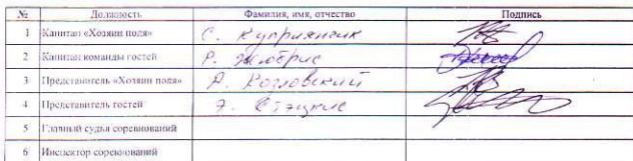 № Должность Фамилия, имя, отчество Подпись
1 Капитан «Хозяин поля» С. Куприянчик
2 Капитан команды гостей Р.
3 Представитель «Хозяин поля» А. Козловский
4 Представитель гостей Э. Стацкис
5 Главный судья соревнований
6 Инспектор соревнований